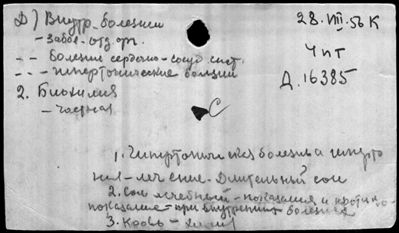 Д) Внутр. болезни
28.VIII.56 К
- забол. отд. орг.
Ч пт
-- Болезни сердечно-сосуд. сист.
Д.16385
-- - гипертонические болезни
2. Биохимия
- частная
С
1. Гипертоническая болезнь и гиперто
ния - лечение - Длительный сон
2. Сон лечебный - показания и противо-
показания - при внутренних болезнях
3. Кровь - химия